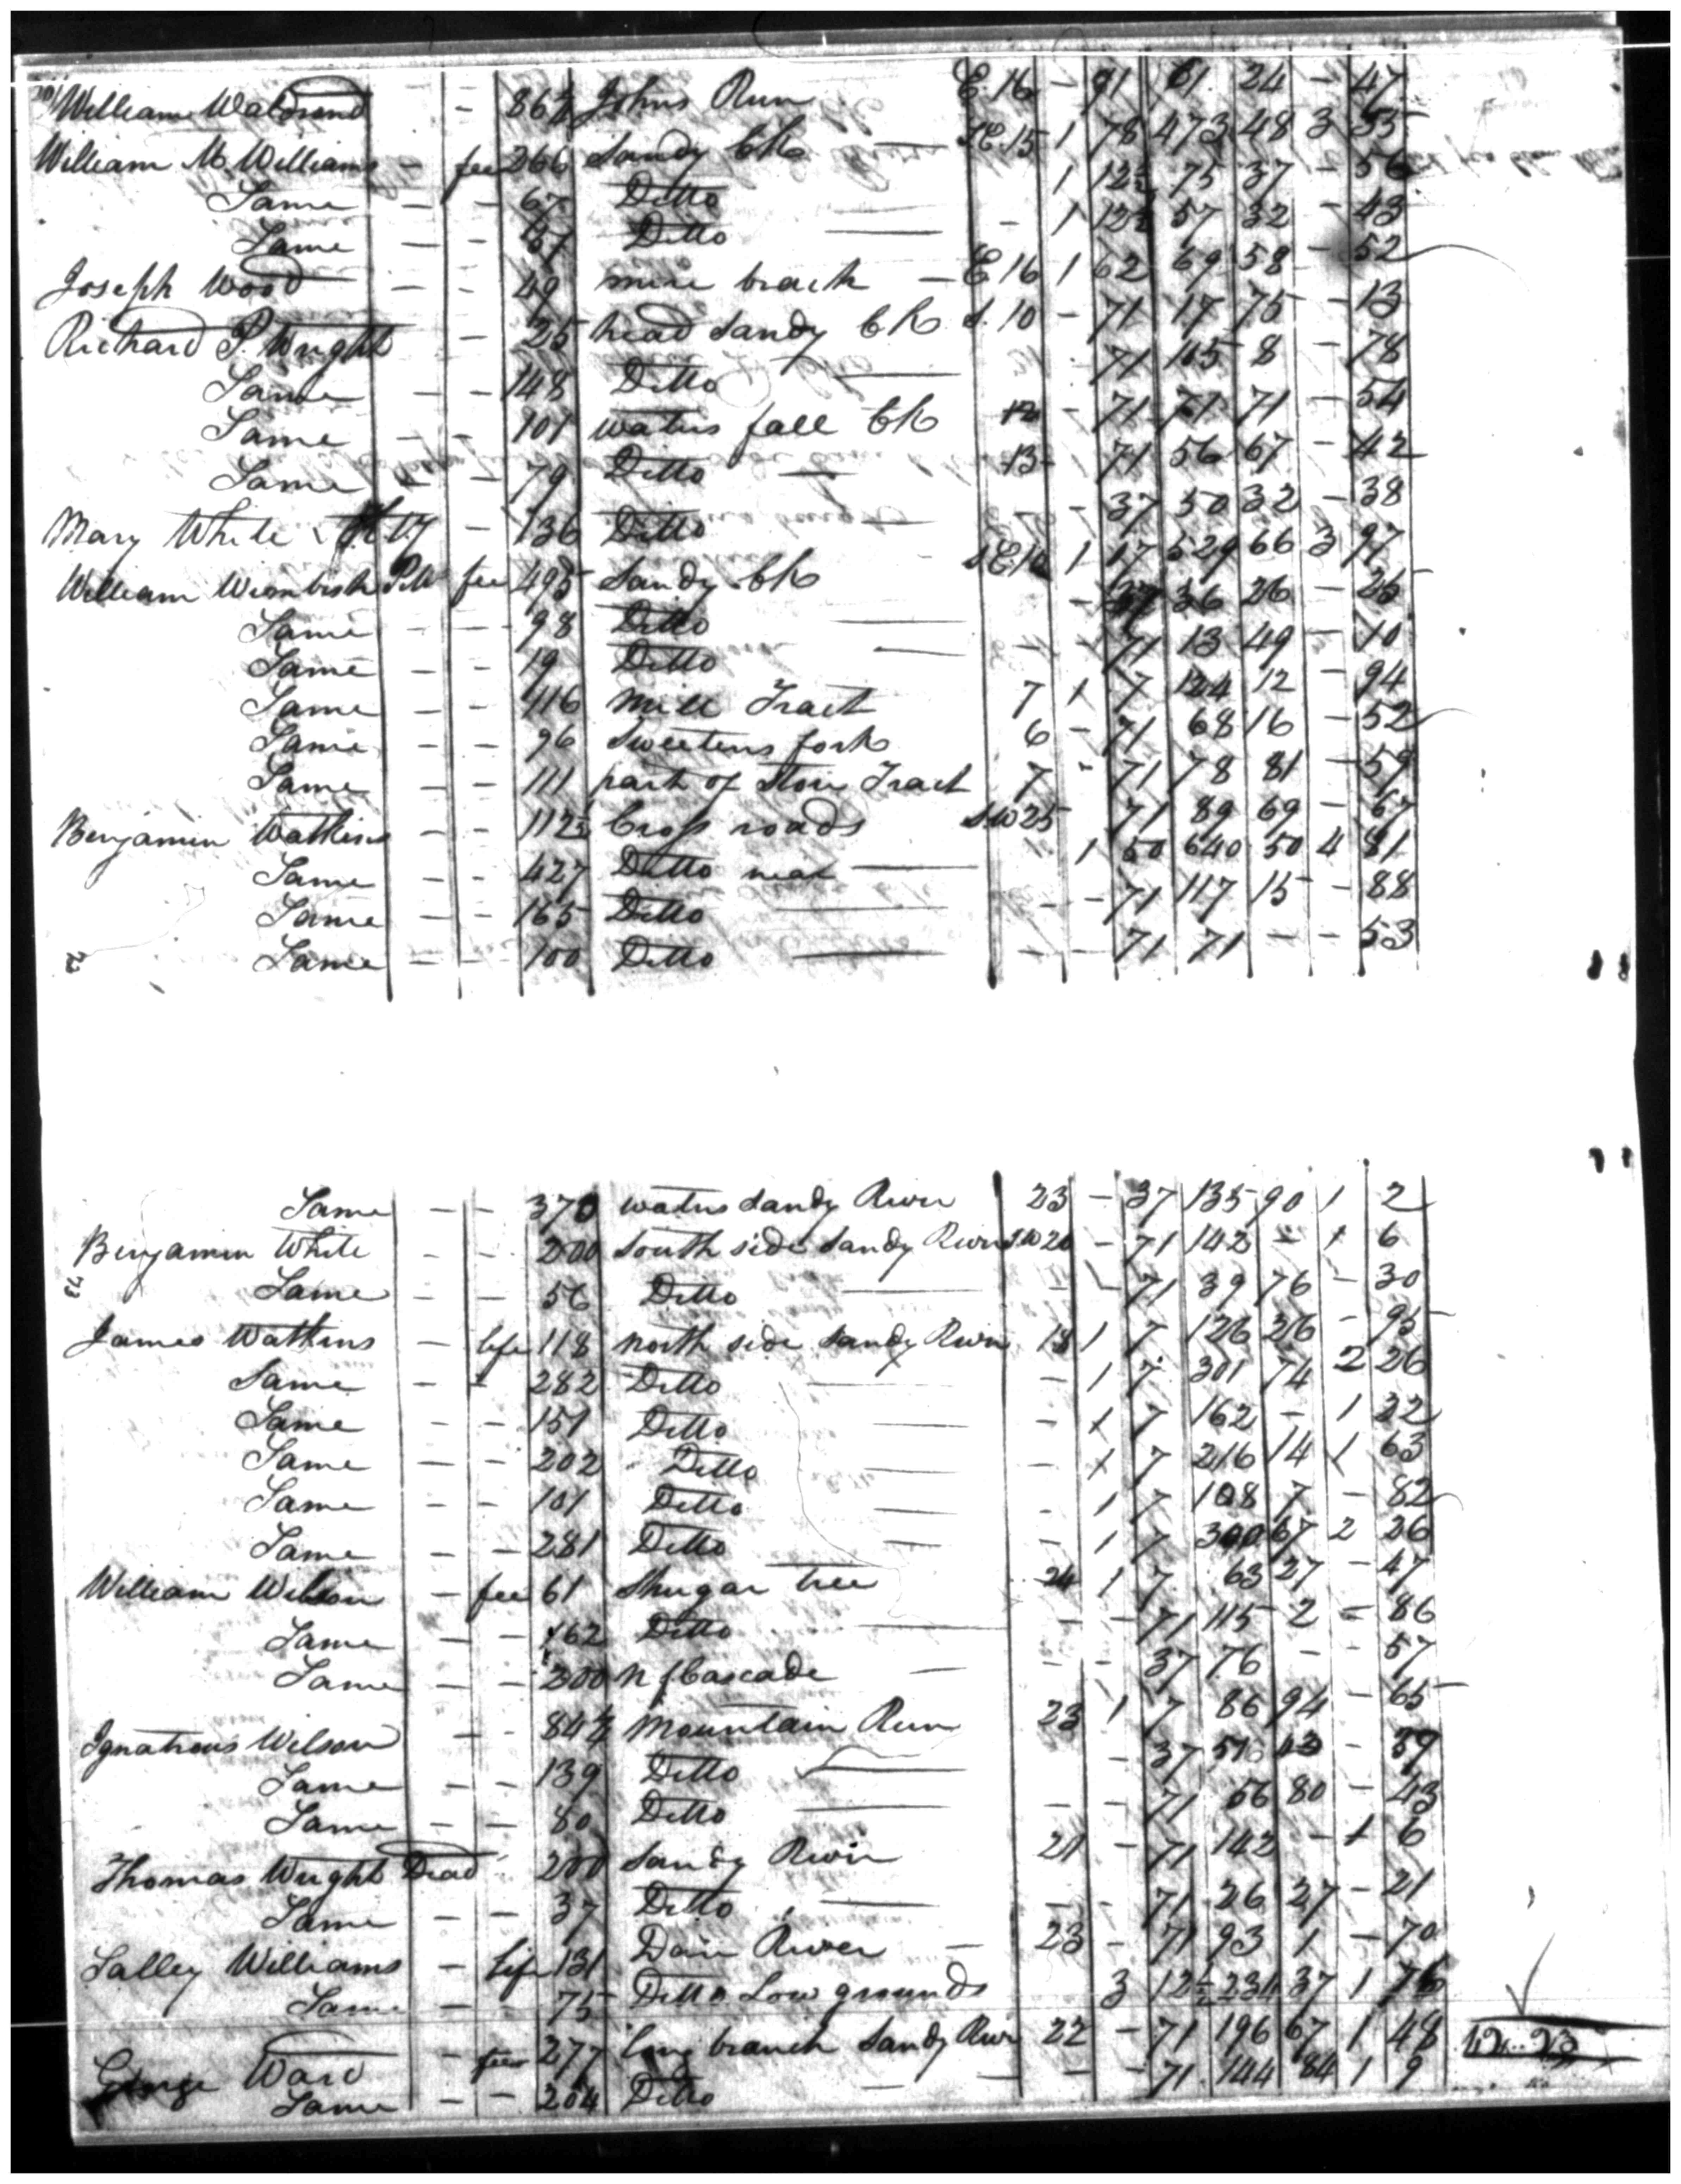 William Waldrond - 86½ Johns Run E. 16 - 71 61 24 - 47
William M Williams - fee 266 Sandy Ck — S.E. 15 1 78 473 48 3 55
Same - - 67 Ditto — 1 12½ 75 37 - 56
Same - - 51 Ditto — - 1 12½ 57 32 - 43
Joseph Wood - - 49 mire brach - E 16 1 62 69 58 - 52
Richard P. Wright - 25 head Sandy Ck S. 10 - 71 17 75 - 13
Same - - 148 Ditto — 71 105 8 - 78
Same - - 101 waters fall Ck 12 - 71 71 71 - 54
Same - - 79 Ditto — 13 71 56 67 - 42
Mary White - 136 Ditto — - - 37 50 32 - 38
William Wimbish fee 495 Sandy Ck S E 10 1 17 529 66 3 97
Same - - 98 Ditto — - 37 36 26 - 25
Same - - 19 Ditto — - - 71 13 49 - 10
Same - - 116 mill Tract 7 1 7 124 12 - 94
Same - - 96 Sweetens fork 6 - 71 68 16 - 52
Same - - 111 part of Stow Tract 7 - 71 78 81 - 59
Benjamin Watkins - - 112½ Cross roads S W 25 71 89 69 - 67
Same - - 427 Ditto near — 1 50 640 50 4 81
Same - - 165 Ditto — - - 71 117 15 - 88
72 Same - - 100 Ditto — - - 71 71 - - 53
Same - - 370 waters Sandy River 23 - 37 135 90 1 2
Benjamin White - - 200 South side Sandy River S W 20 - 71 142 - 1 6
73 Same - - 56 Ditto — - - 71 39 76 - 30
James Watkins - life 118 north side Sandy River 18 1 7 126 26 - 95
Same - - 282 Ditto — - 1 7 301 74 2 26
Same - - 151 Ditto — - 1 7 162 - 1 22
Same - - 202 Ditto — - 1 7 216 14 1 63
Same - - 101 Ditto — - 1 7 108 7 - 82
Same - - 281 Ditto — - 1 7 300 67 2 26
William Wilson - fee 61 Shugar tree 24 1 7 63 27 - 47
Same - - 162 Ditto — - - 71 115 2 - 86
Same - - 200 n f Cascade - - - 37 76 - - 57
Ignatious Wilson - 84½ Mountain Run 23 1 7 86 94 - 65
Same - - 139 Ditto — - 37 51 43 - 39
Same - - 80 Ditto — - - 71 56 80 - 43
Thomas Wright Dead 200 Sandy River 21 - 71 142 - 1 6
Same - - 37 Ditto — - - 71 26 27 - 21
Salley Williams - life 131 Dan River - 23 - 71 93 1 - 70
Same - - 75 Ditto Low grounds 3 12½ 234 37 1 76
George Ward - fee 277 long branch Sandy River 22 - 71 196 67 1 48 12..23
Same - - 204 Ditto - - - 71 144 84 1 9